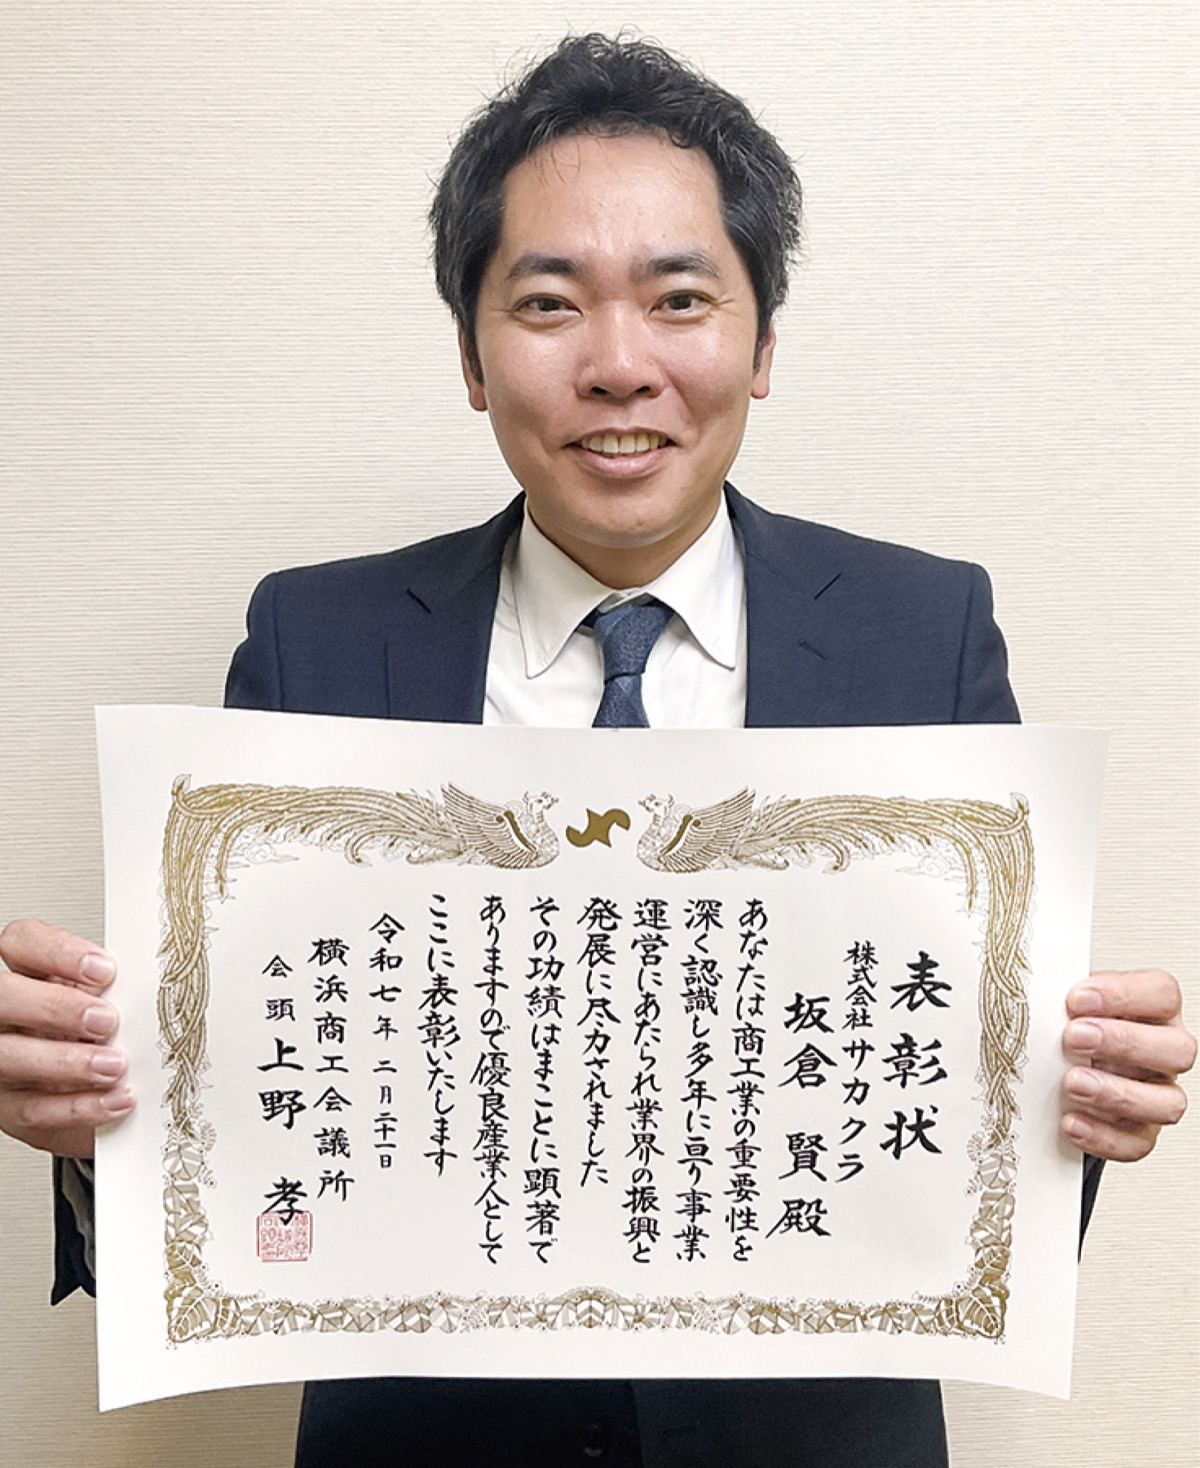 表彰状
株式会社サカクラ
坂倉 賢 殿
あなたは商工業の重要性を
深く認識し多年に亘り事業
運営にあたられ業界の振興と
発展に尽力されました
その功績はまことに顕著で
ありますので優良産業人として
ここに表彰いたします
令和七年 二月二十一日
横浜商工会議所
会頭 上野 孝